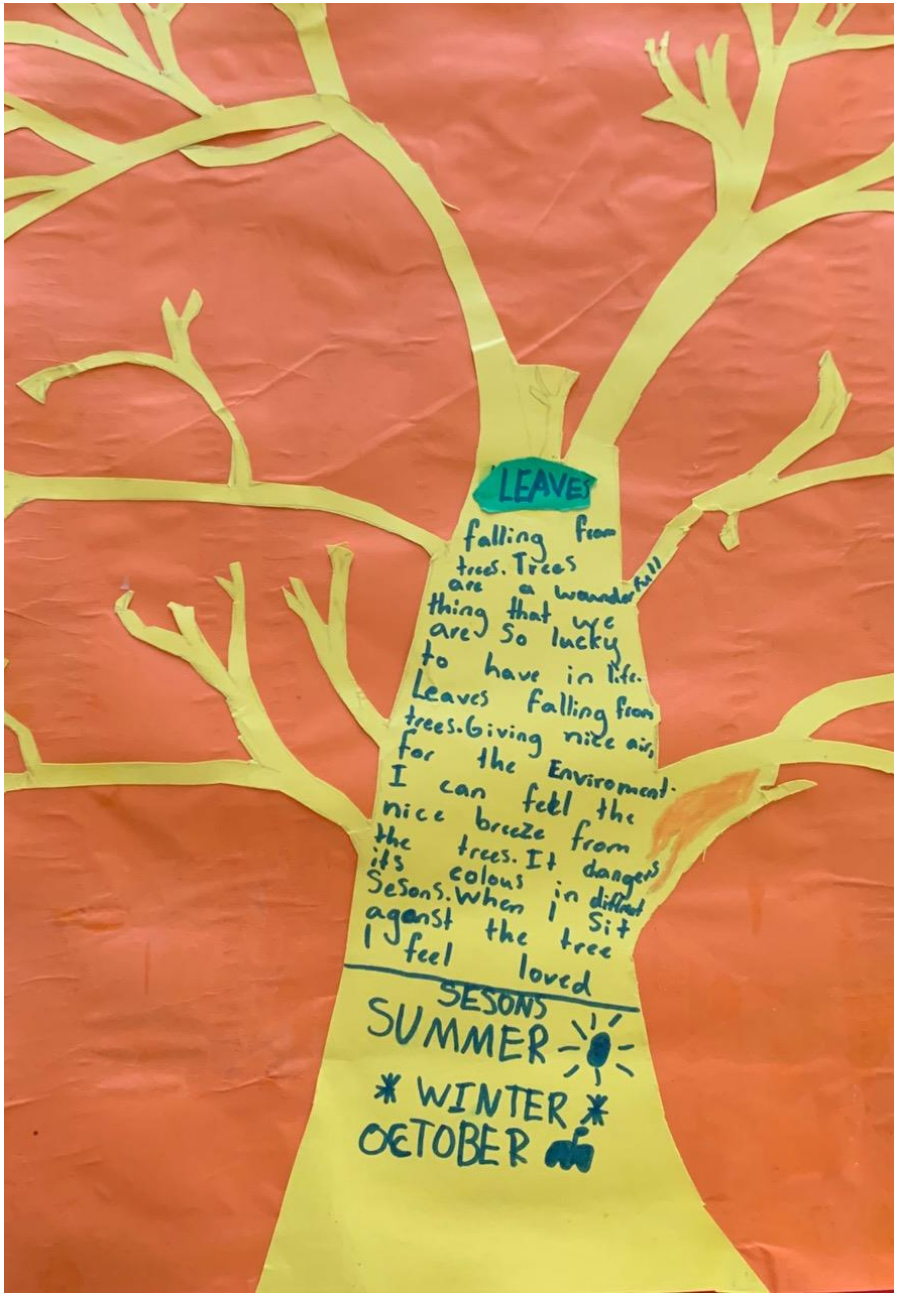 LEAVES
falling from
trees. Trees
are a waunderfull
thing that we
are so lucky
to have in life.
Leaves falling from
trees. Giving nice air,
for the Enviroment.
I can feel the
nice breeze from
the trees. It dangers
its colous in diffrent
Sesons. When I Sit
aganst the tree
I feel loved
SESONS
SUMMER
WINTER
OCTOBER